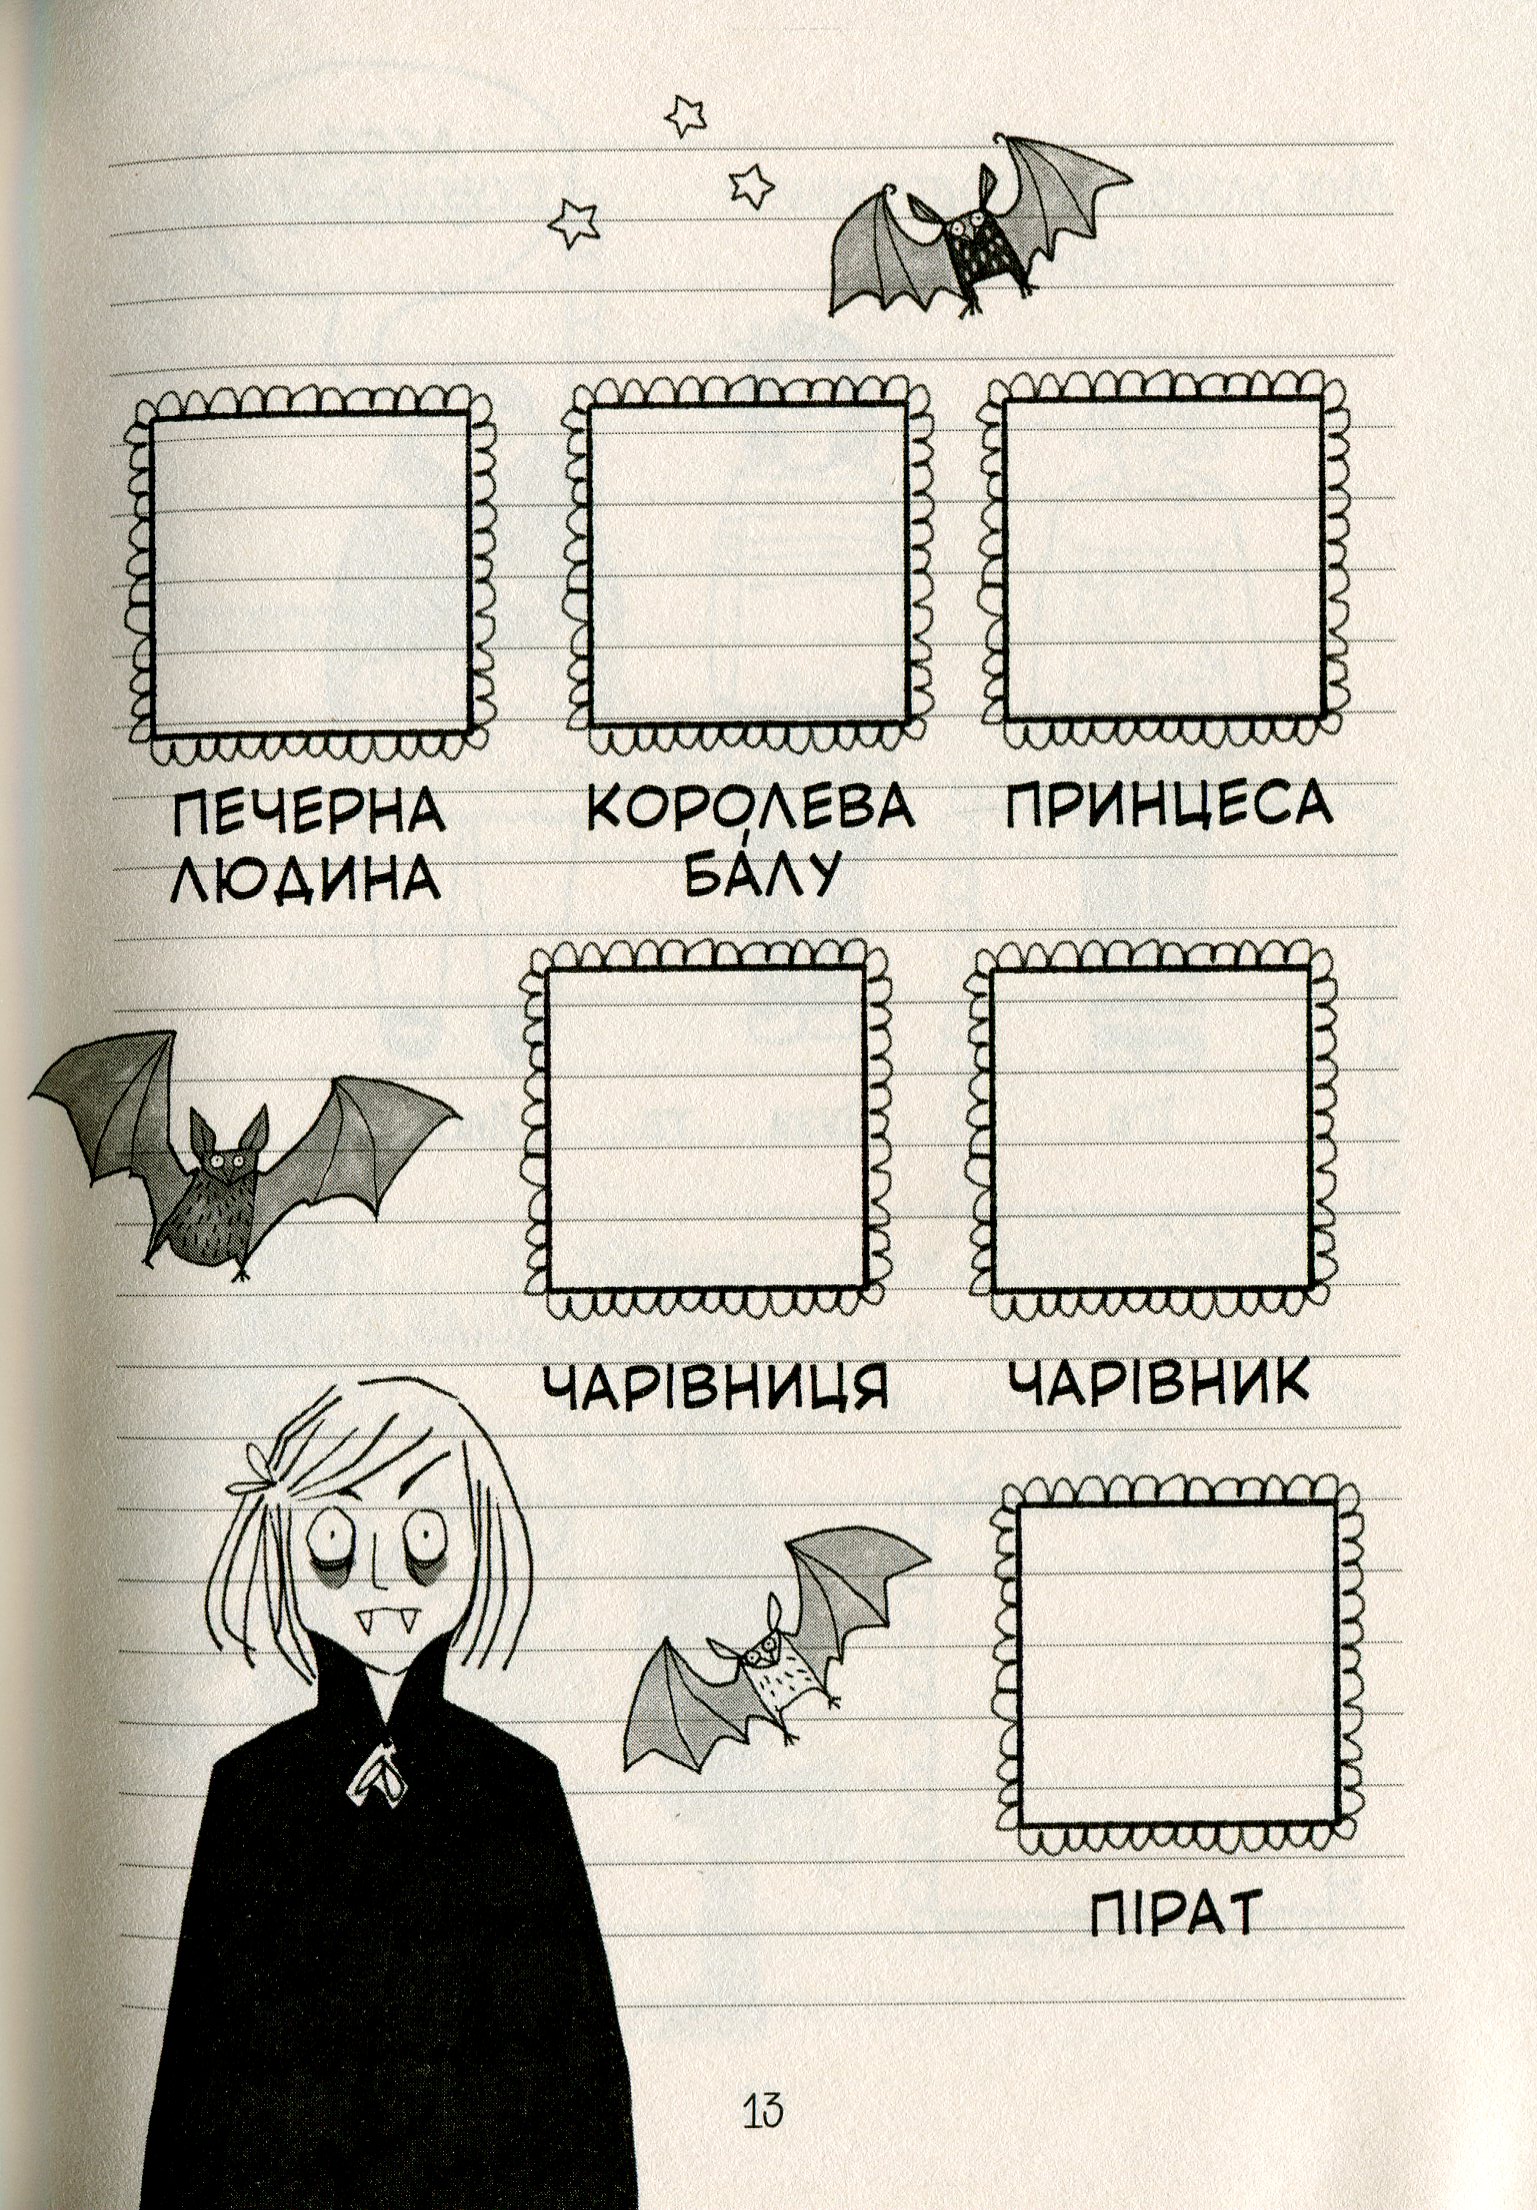 ПЕЧЕРНА
ЛЮДИНА
КОРОЛЕВА
БА́ЛУ
ПРИНЦЕСА
ЧАРІВНИЦЯ
ЧАРІВНИК
ПІРАТ
13